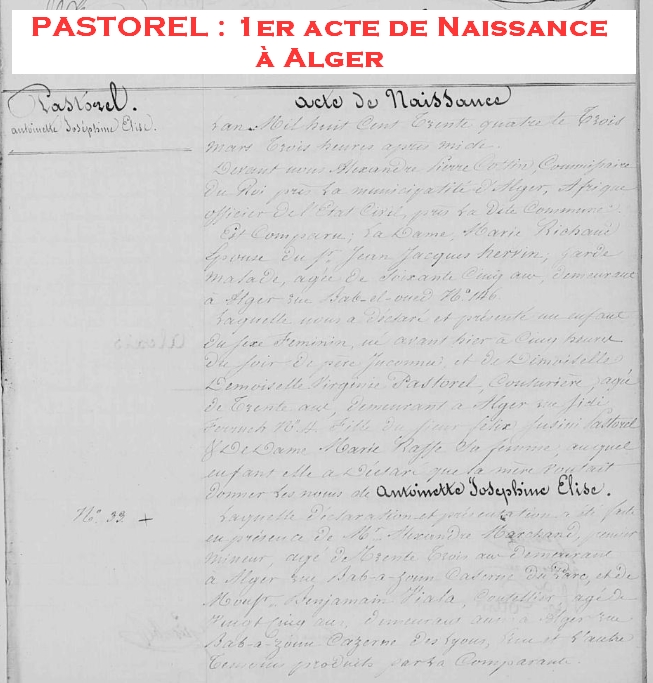 PASTOREL : 1ER ACTE DE NAISSANCE
À ALGER
Pastorel.
antoinette Joséphine Elise.
acte de Naissance
Lan Mil huit Cent Trente quatre le Trois
mars Trois heures après midi.
Devant nous Alexandre pierre Cottin, Commissaire
du Roi près la municipalité d'Alger, Afrique
officier de l'Etat Civil, près la dite Commune
Est Comparu; La Dame, Marie Richaud
Epouse du Sr. Jean Jacques herrin; garde
malade, agée de Soixante Cinq ans, demeurant
à Alger rue Bab-el-oued No. 146.
Laquelle nous a déclaré et présenté un enfant
du sexe Feminin, né avant hier à onze heures
du Soir de père Inconnu; et de Demoiselle
Demoiselle Virginie Pastorel, Couturière, agée
de Trente ans, demeurant à Alger rue Sidi
Ferruch No. 4 fille du Sieur félix Pastorel
& De Dame Marie Raffe Sa femme; auquel
enfant elle a Déclaré que la mère voulait
donner les noms de antoinette Josephine Elise.
Laquelle déclaration et présentation a été faite
No. 33 +
en présence de Mr. Alexandre Marchand, premier
mineur, agé de Trente Trois ans demeurant
à Alger rue Bab-a-zoun Caserne du Parc, et de
Monsr. Benjamain Viala, Coutellier, agé de
vingt cinq ans, demeurant aussi à Alger rue
Bab-a-zoun Cazerne des Lyons, l'un et l'autre
Temoins produits par la Comparante.